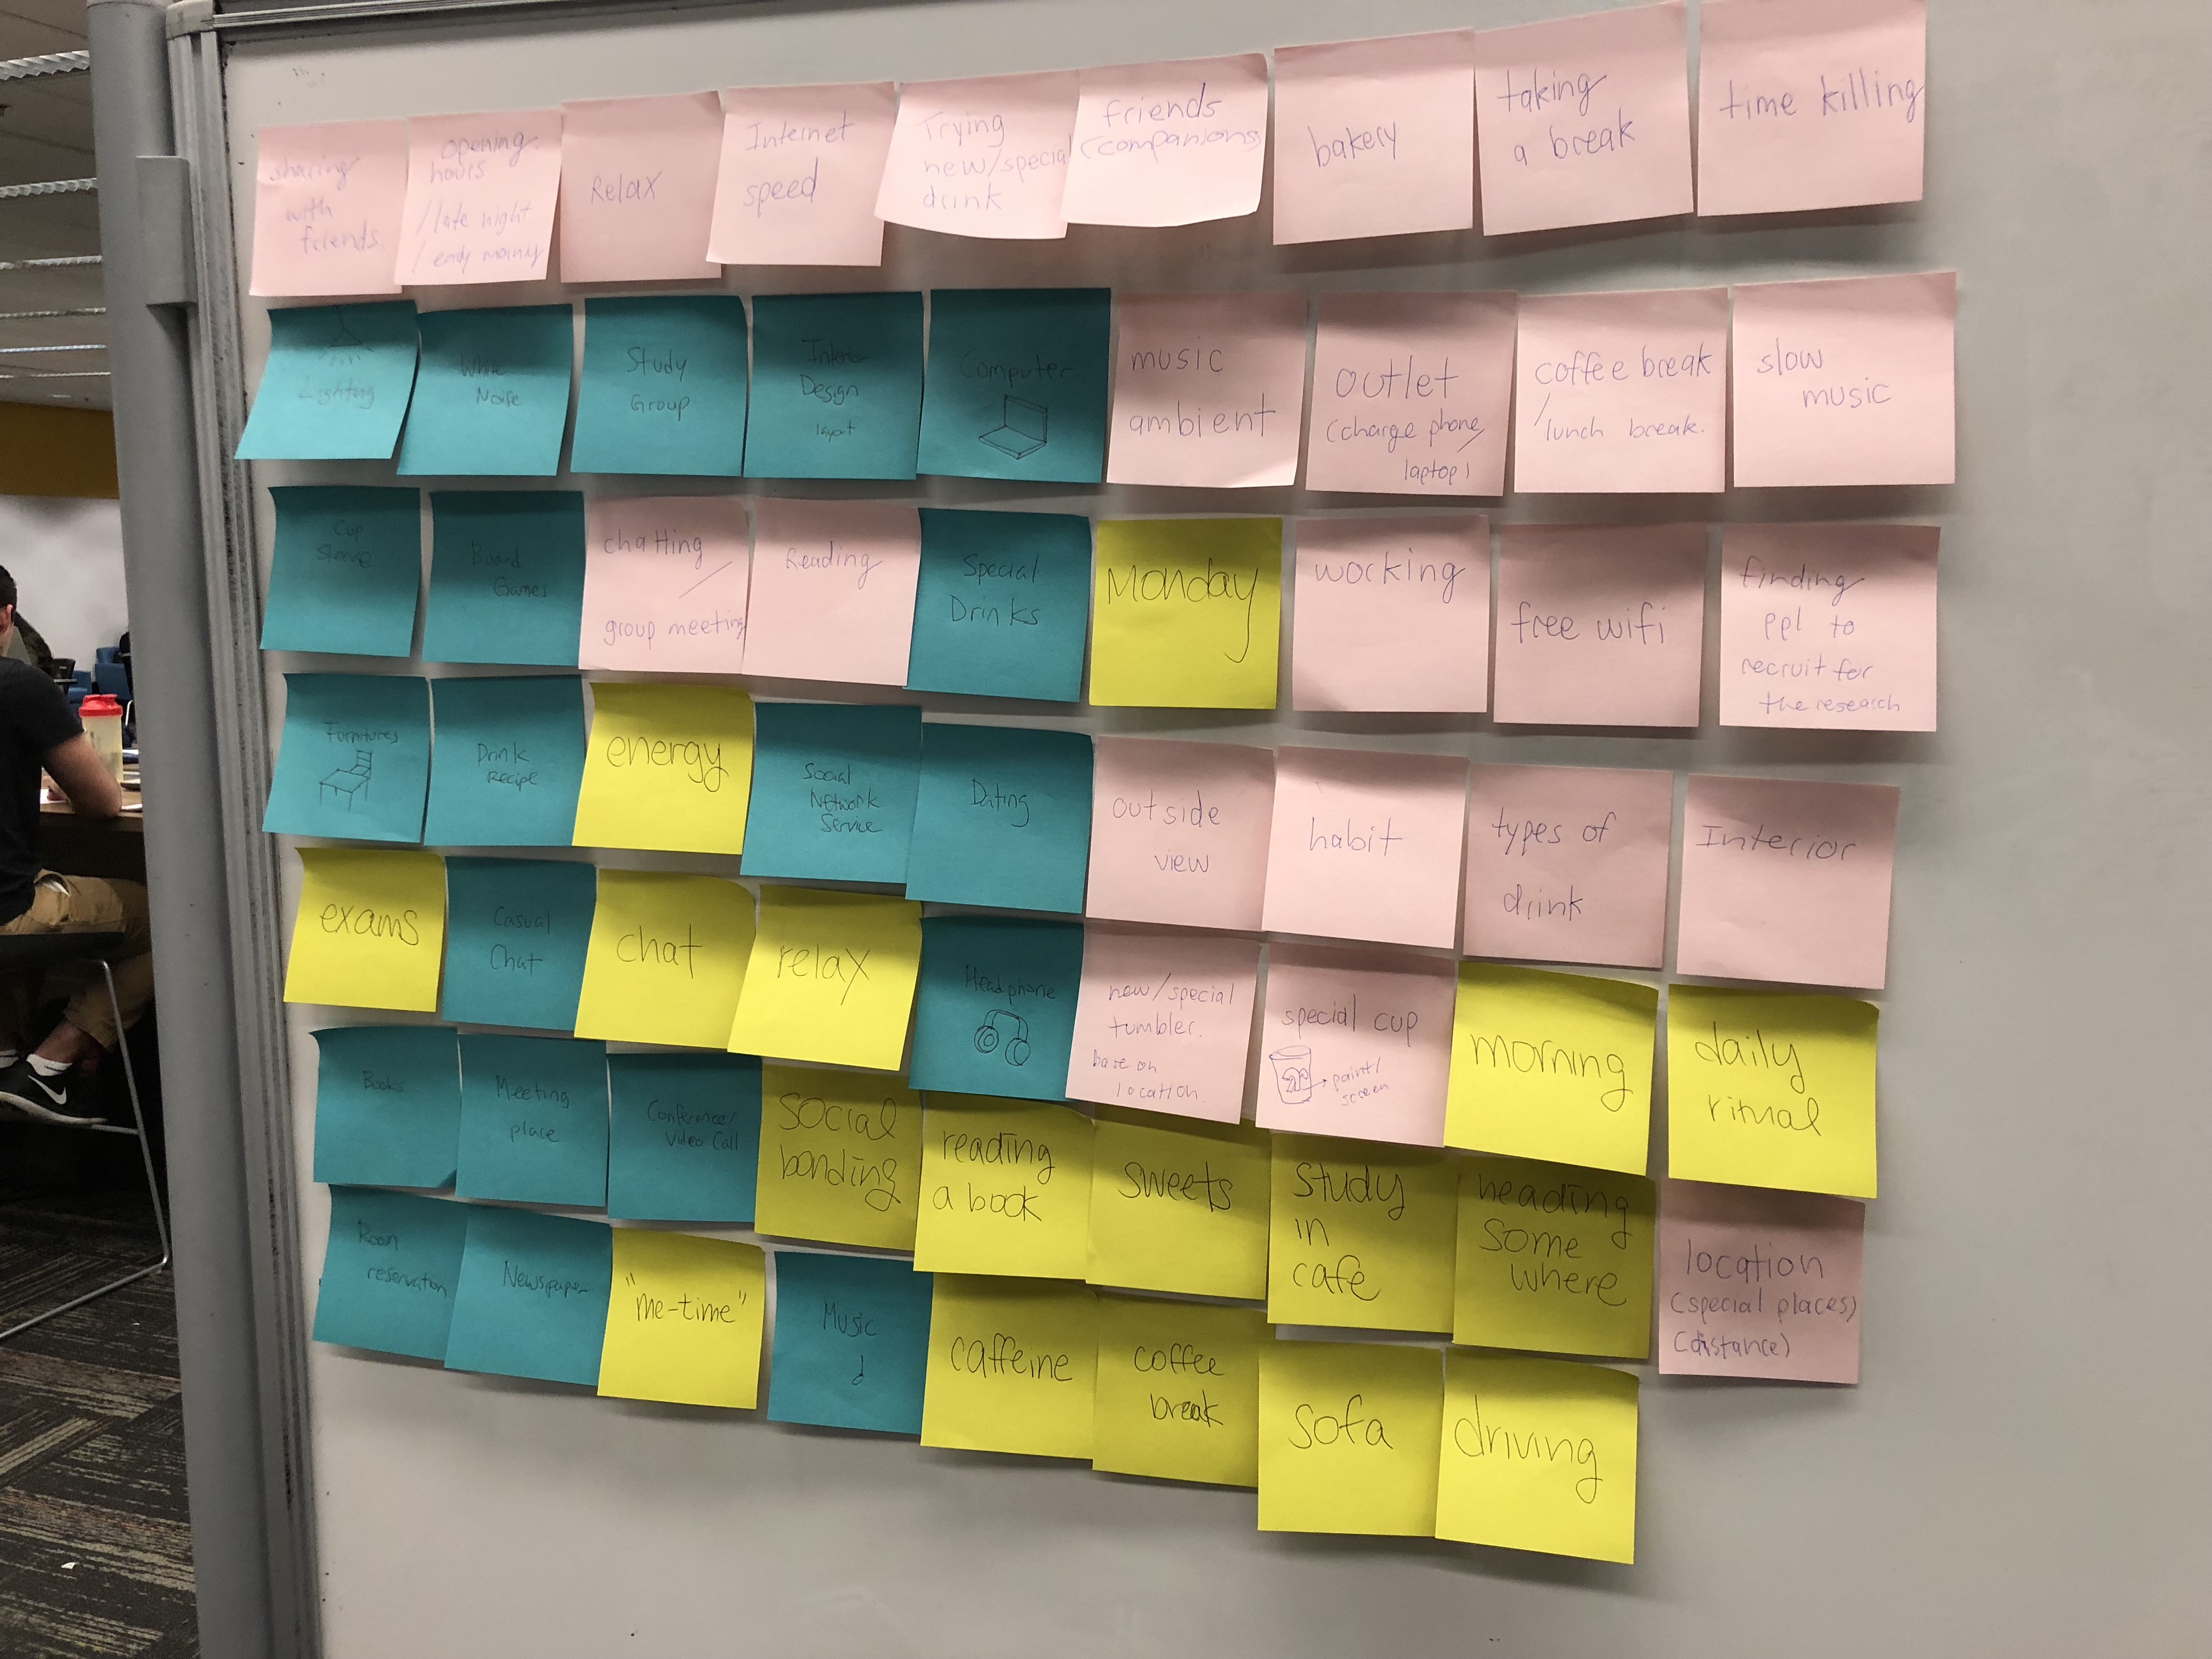 sharing
with
friends
opening
hours
/late night
/early morning
Relax
Internet
speed
Trying
new/special
drink
friends
(companions)
bakery
taking
a break
time killing
Lighting
White
Noise
Study
Group
Interior
Design
layout
Computer
music
ambient
outlet
(charge phone/
laptop)
coffee break
/lunch break.
slow
music
Cup
Sleeve
Board
Games
chatting
/
group meeting
Reading
Special
Drinks
Monday
working
free wifi
finding
ppl to
recruit for
the research
Furnitures
Drink
Recipe
energy
Social
Network
Service
Dating
outside
view
habit
types of
drink
Interior
exams
Casual
Chat
chat
relax
Headphone
new/special
tumbler.
base on
location.
special cup
paint/
screen
morning
daily
ritual
Books
Meeting
place
Conference/
Video Call
social
bonding
reading
a book
sweets
study
in
cafe
heading
some
where
location
(special places)
(distance)
Room
reservation
Newspaper
"me-time"
Music
caffeine
coffee
break
sofa
driving